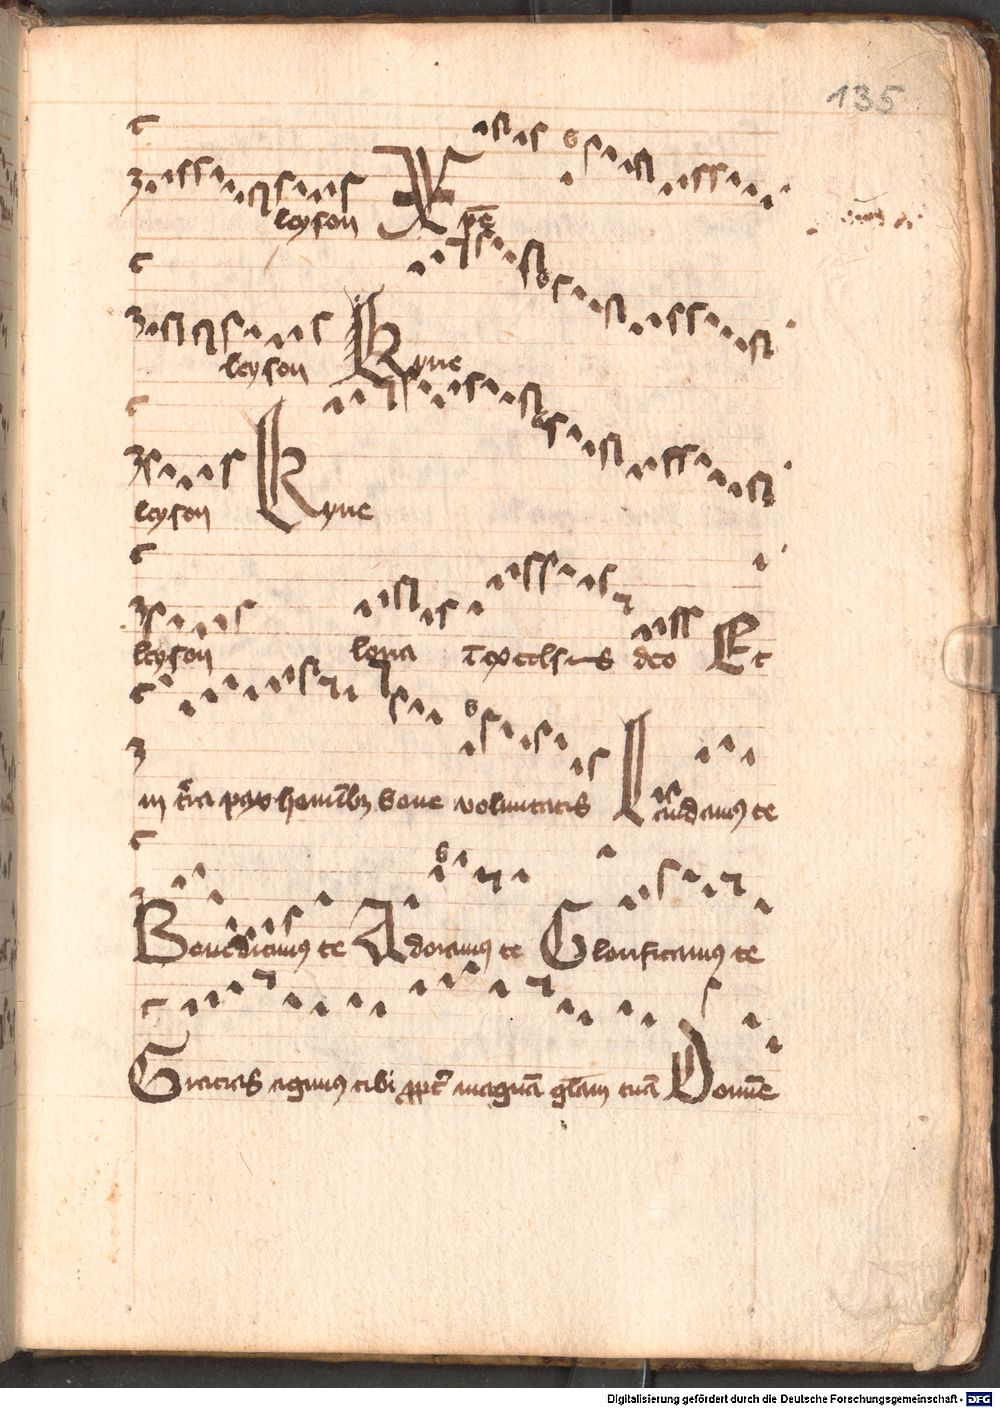 135
leyson Xp̄e
leyson kyrie
leyson kyrie
leyson loria ī excelsis deo Et
in t̄ra pax hominibꝫ bone voluntatis Laudamꝰ te
Benedicimꝰ te Adoramꝰ te Glorificamꝰ te
Gratias agimꝰ tibi ꝓpt̄ magnā gl̄am tuā Domine
Digitalisierung gefördert durch die Deutsche Forschungsgemeinschaft - DFG